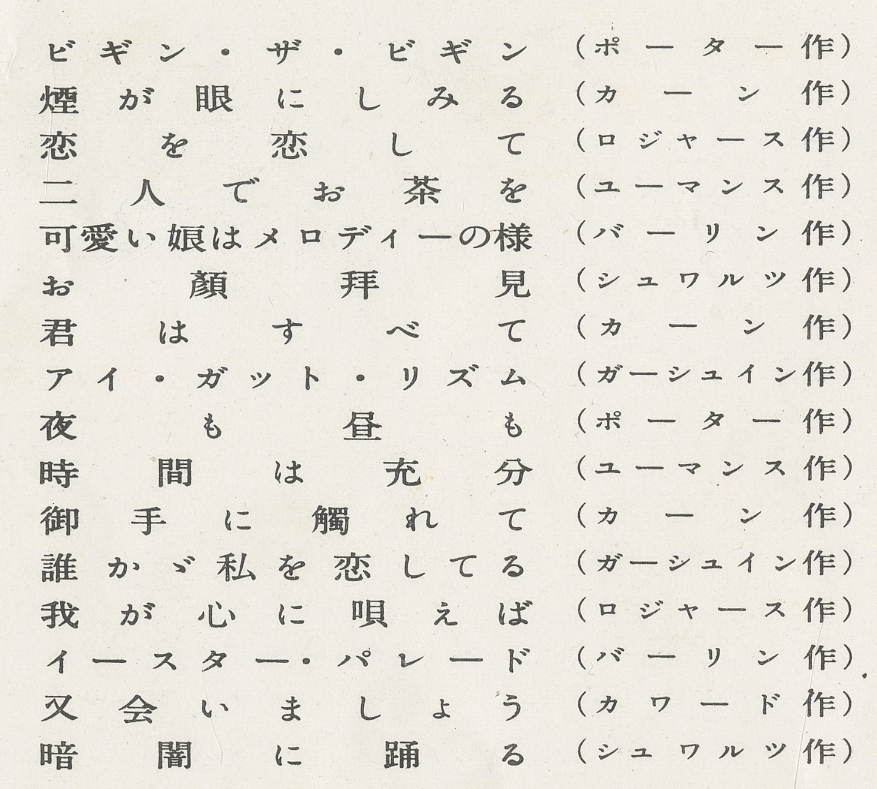 ビギン・ザ・ビギン（ポーター作）
煙が眼にしみる（カーン作）
恋を恋して（ロジャース作）
二人でお茶を（ユーマンス作）
可愛い娘はメロディーの様（バーリン作）
お顔拝見（シュワルツ作）
君はすべて（カーン作）
アイ・ガット・リズム（ガーシュイン作）
夜も昼も（ポーター作）
時間は充分（ユーマンス作）
御手に觸れて（カーン作）
誰かゞ私を恋してる（ガーシュイン作）
我が心に唄えば（ロジャース作）
イースター・パレード（バーリン作）
又会いましょう（カワード作）
暗闇に踊る（シュワルツ作）